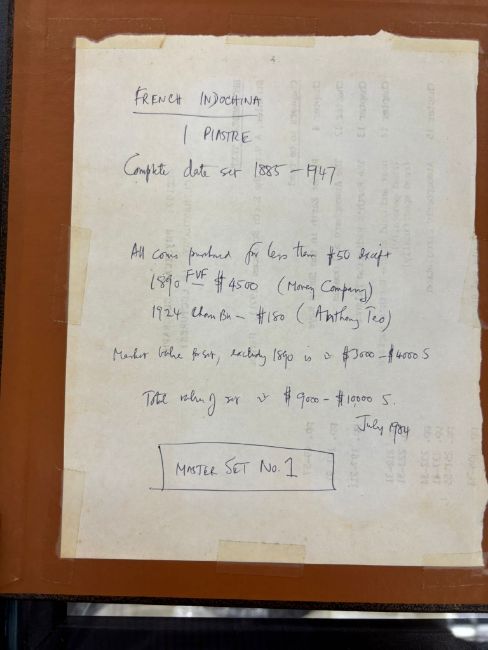 FRENCH INDOCHINA
1 PIASTRE
Complete date set 1885 - 1947
All coins purchased for less than $50 except
1890 FVF - $4500 (Money Company)
1924 - $180 (Anthony Teo)
Market value for set, excluding 1890 is ≈ $3000 - $4000 S
Total value of set ≈ $9000 - $10,000 S.
July 1984
MASTER SET No. 1